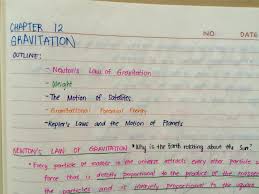 CHAPTER 12
GRAVITATION
NO DATE
OUTLINE:
- Newton's Law of Gravitation
- Weight
- The Motion of Satellites
- Gravitational Potential Energy
- Kepler's Laws and the Motion of Planets
NEWTON'S LAW OF GRAVITATION "Why is the Earth rotating about the Sun"
• Every particle of matter in the universe attracts every other particle
force that is directly proportional to the product of the masses
the particles and is inversely proportional to the square